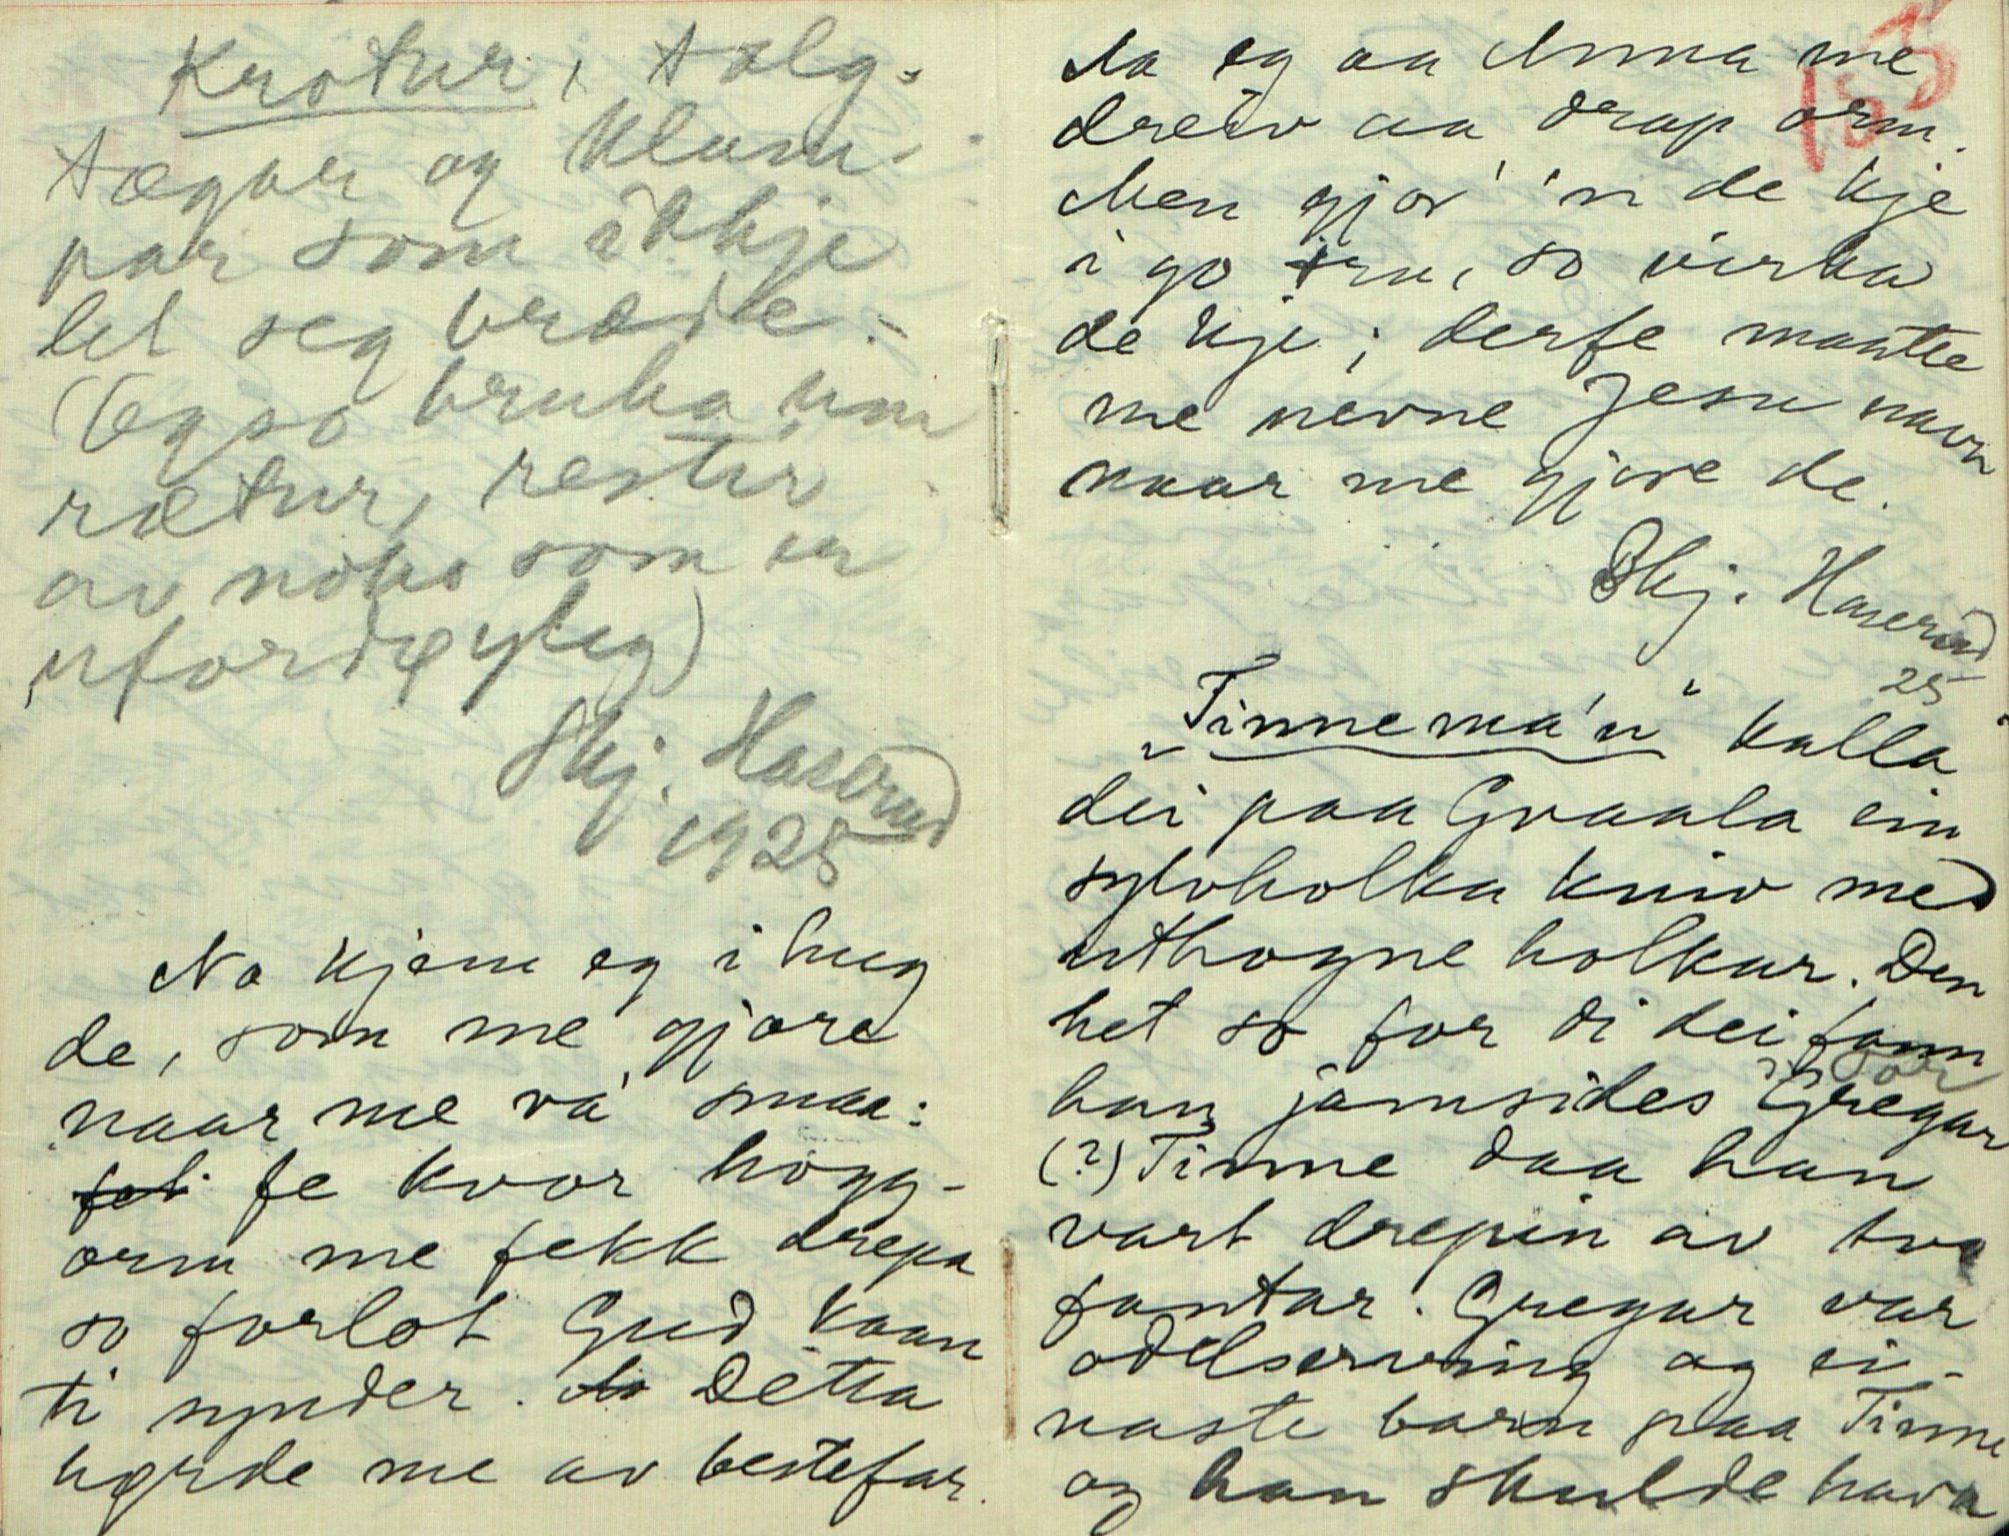 Krotur, talg-
tægar og klum-
par som ikkje
let seg bræde.
(Ogso bruka um
rætur, restir
av noko som er
ufordøyeleg)
Skj. Haserud
1925
No kjem eg i hug
de, som me gjore
naar me va' smaa:
fe kvor hogg-
orm me fekk drepa
so forlot Gud kaan
ti synder. Detta
hørde me av bestefar.
153
Aa eg aa Anna me
dreiv aa drap orm.
Men gjor' 'n de kje
i go tru, so virka
de kje; derfe maatte
me nevne Jesu navn
naar me gjore de.
Skj. Haserud
25
"Tinnema'n" kalla
dei paa Gvaala ein
sylvholka kniv med
uthogne holkar. Den
het so for di dei fann
han jamsides Gregar
(?) Tinne daa han
vart drepin av tvo
fantar. Gregar var
odelserving og ei-
naste barn paa Tinne
og han skulde hava